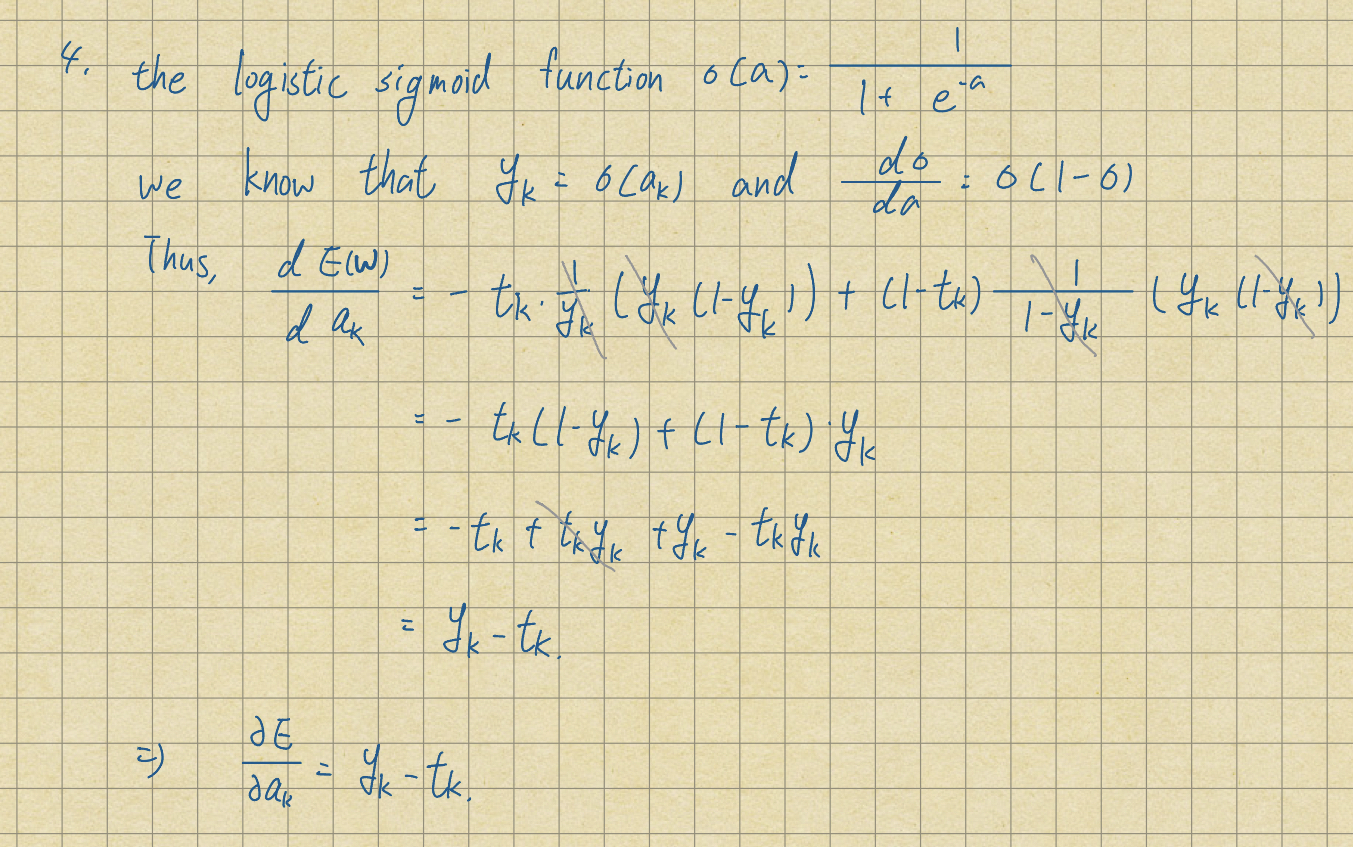 4. the logistic sigmoid function σ(a) = 1 / (1 + e^{-a})
we know that y_k = σ(a_k) and dσ/da = σ(1-σ)
Thus, d E(w) / d a_k = - t_k · 1/y_k (y_k (1-y_k)) + (1-t_k) 1/(1-y_k) (y_k (1-y_k))
= - t_k (1-y_k) + (1-t_k) · y_k
= - t_k + t_k y_k + y_k - t_k y_k
= y_k - t_k.
⇒ ∂E/∂a_k = y_k - t_k.